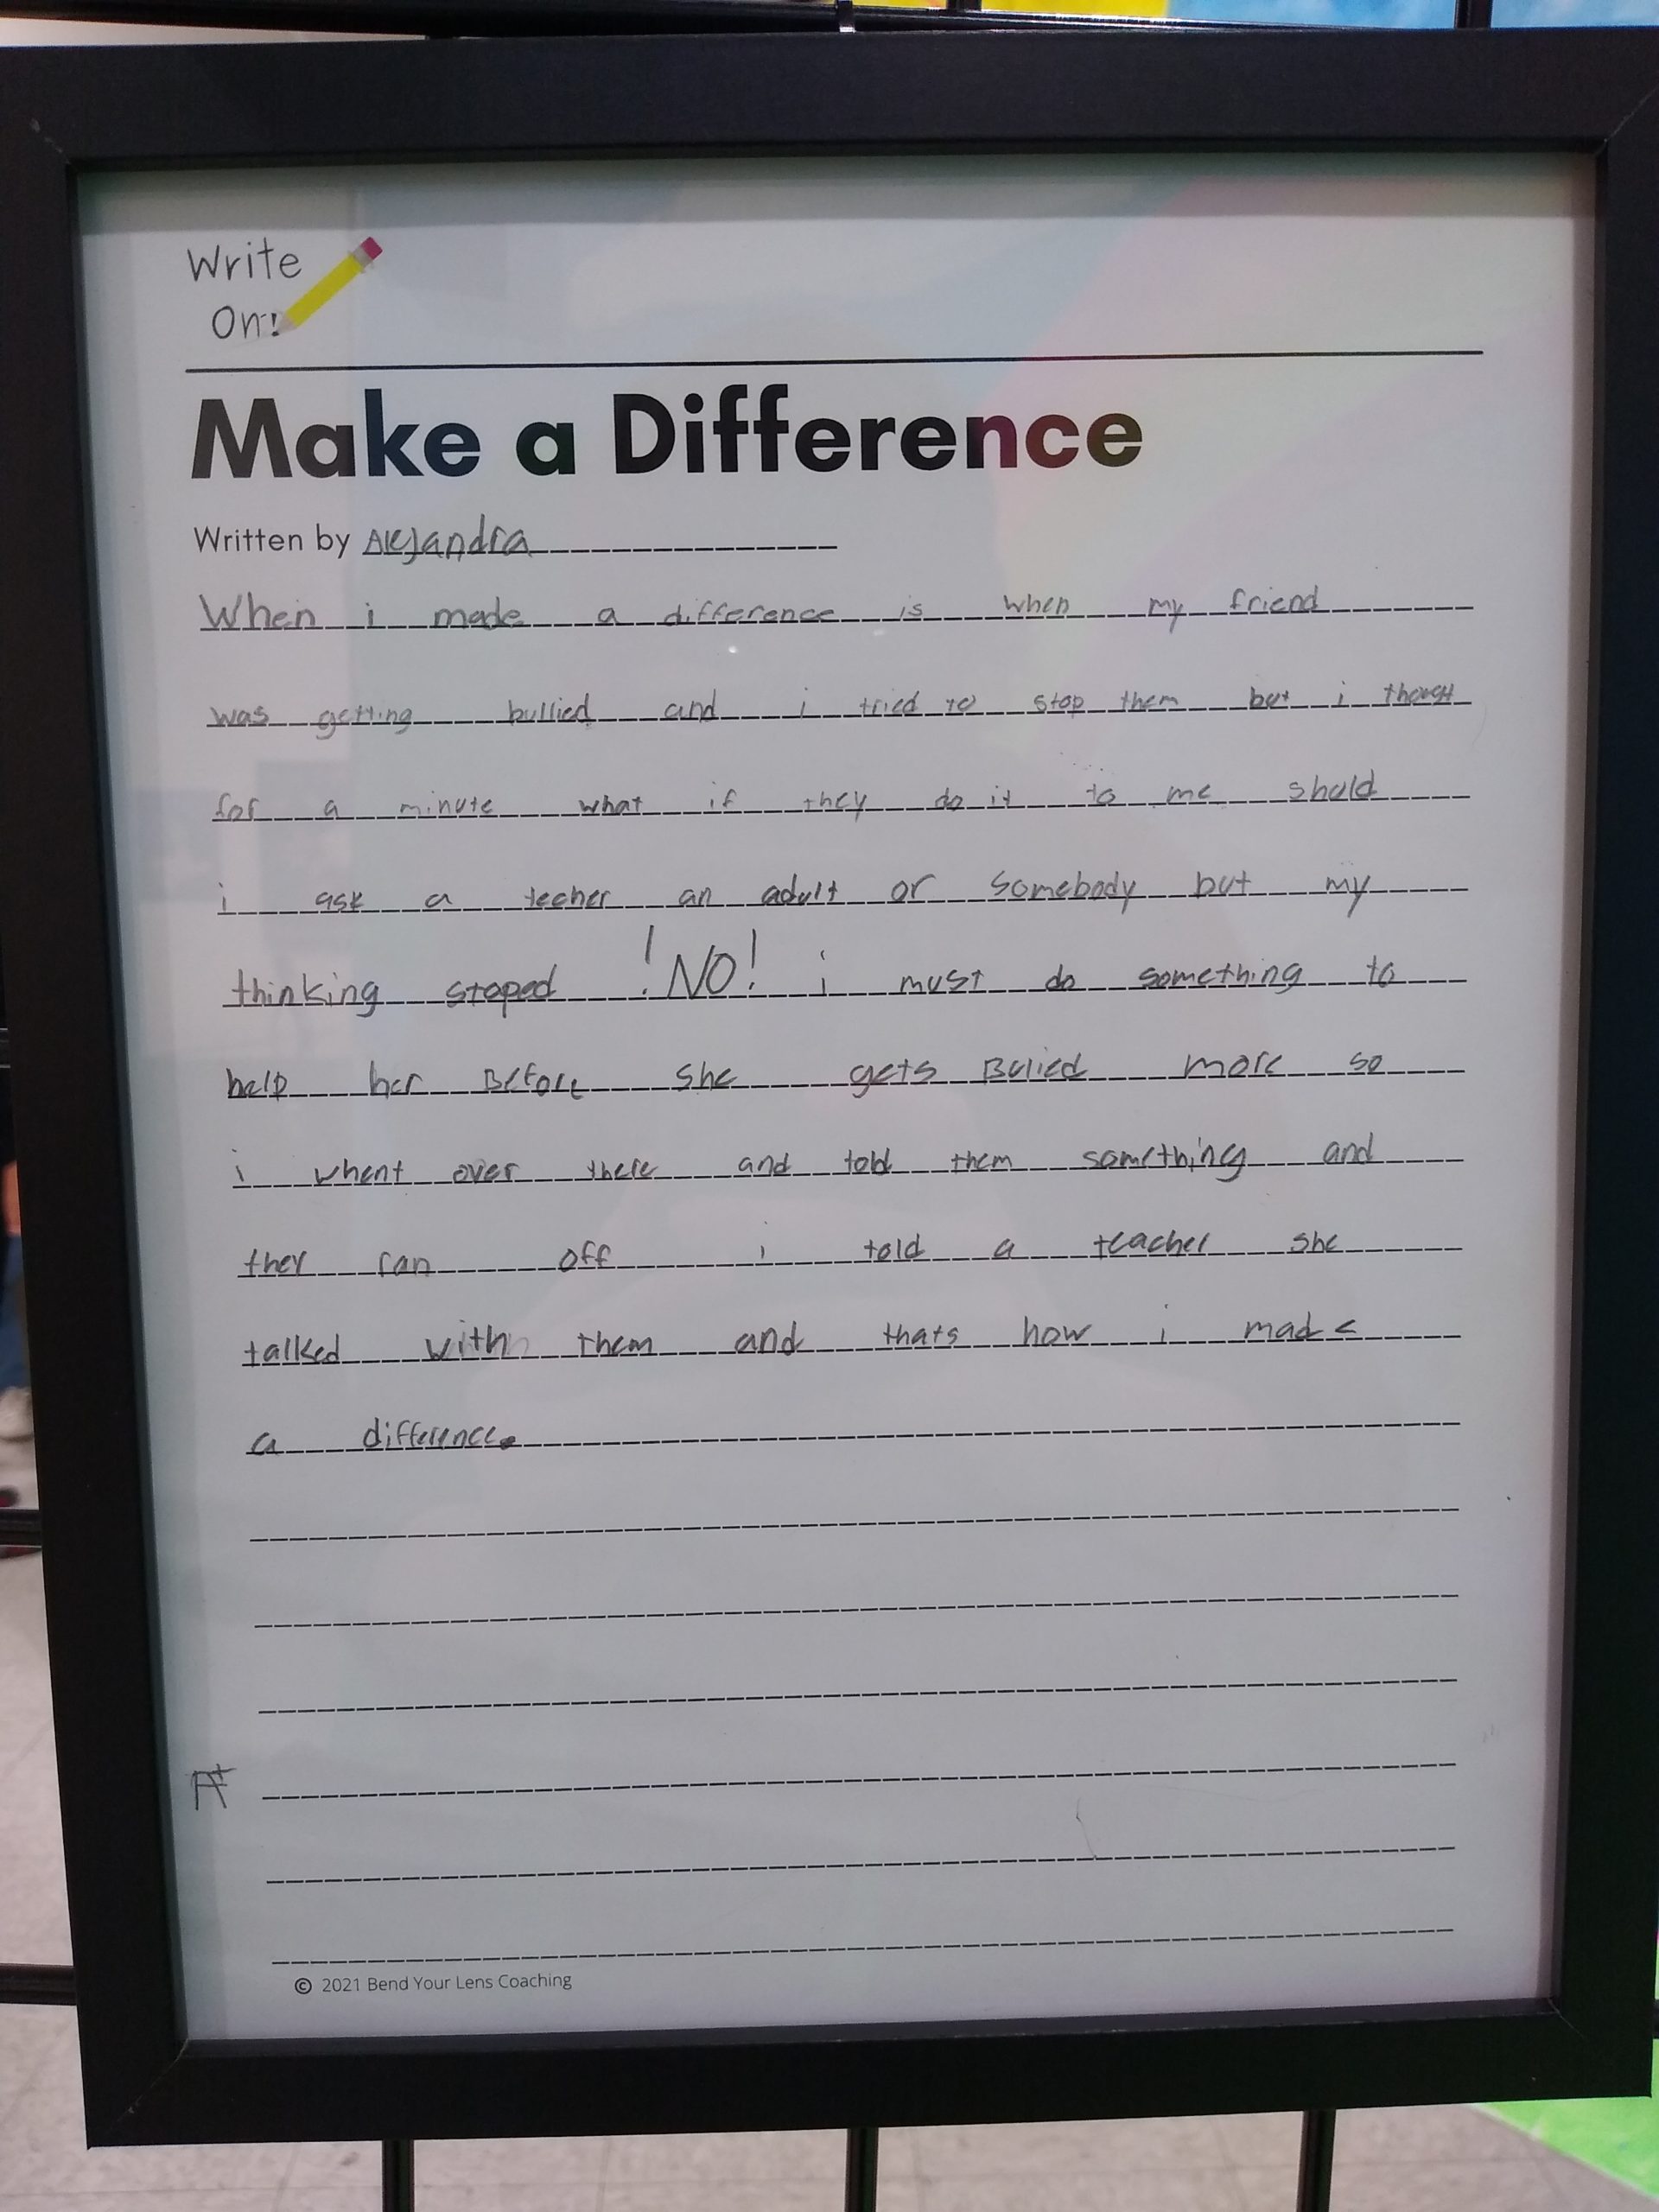 Write
On!
Make a Difference
Written by Alejandra
When i made a difference is when my friend
was getting bullied and i tried to stop them but i
for a minute what if they do it to me shuld
i ask a techer an adult or somebody but my
thinking stoped !NO! i must do something to
help her Before she gets Bulied more so
i whent over there and told them something and
they ran off i told a teacher she
talked with them and thats how i made
a difference.
A+
© 2021 Bend Your Lens Coaching